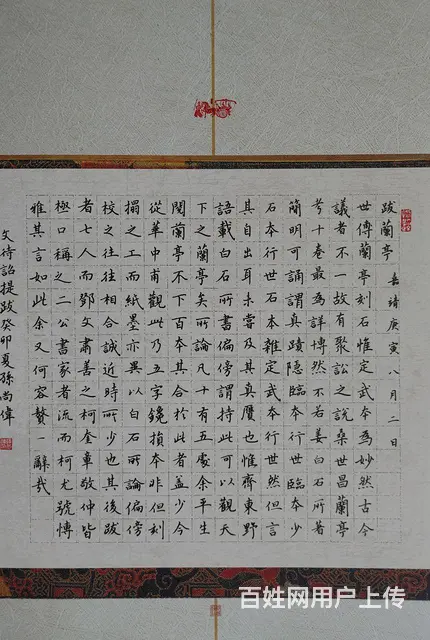 跋蘭亭 嘉靖庚寅八月二日
世傳蘭亭刻石惟定武本為妙然古今
議者不一故有聚訟之說桑世昌蘭亭
考十卷最為詳博然不若姜白石所著
簡明可誦謂真蹟隱臨本行世臨本少
石本行世石本雜定武本行世然但言
其自出耳未嘗及其真贋也惟齊東野
語載白石所書偏傍謂持此可以觀天
下之蘭亭矣所論凡十有五處余平生
閱蘭亭不下百本其合於此者蓋少今
從華中甫觀此乃五字鑱損本非但刻
搨之工而紙墨亦異以白石所論偏傍
校之往往相合誠近時所少也其後跋
者七人而鄧文肅善之柯奎章敬仲皆
極口稱之二公書家者流而柯尤號博
雅其言如此余又何容贅一辭哉
文待詔提跋癸卯夏孫尚偉
百姓网用户上传